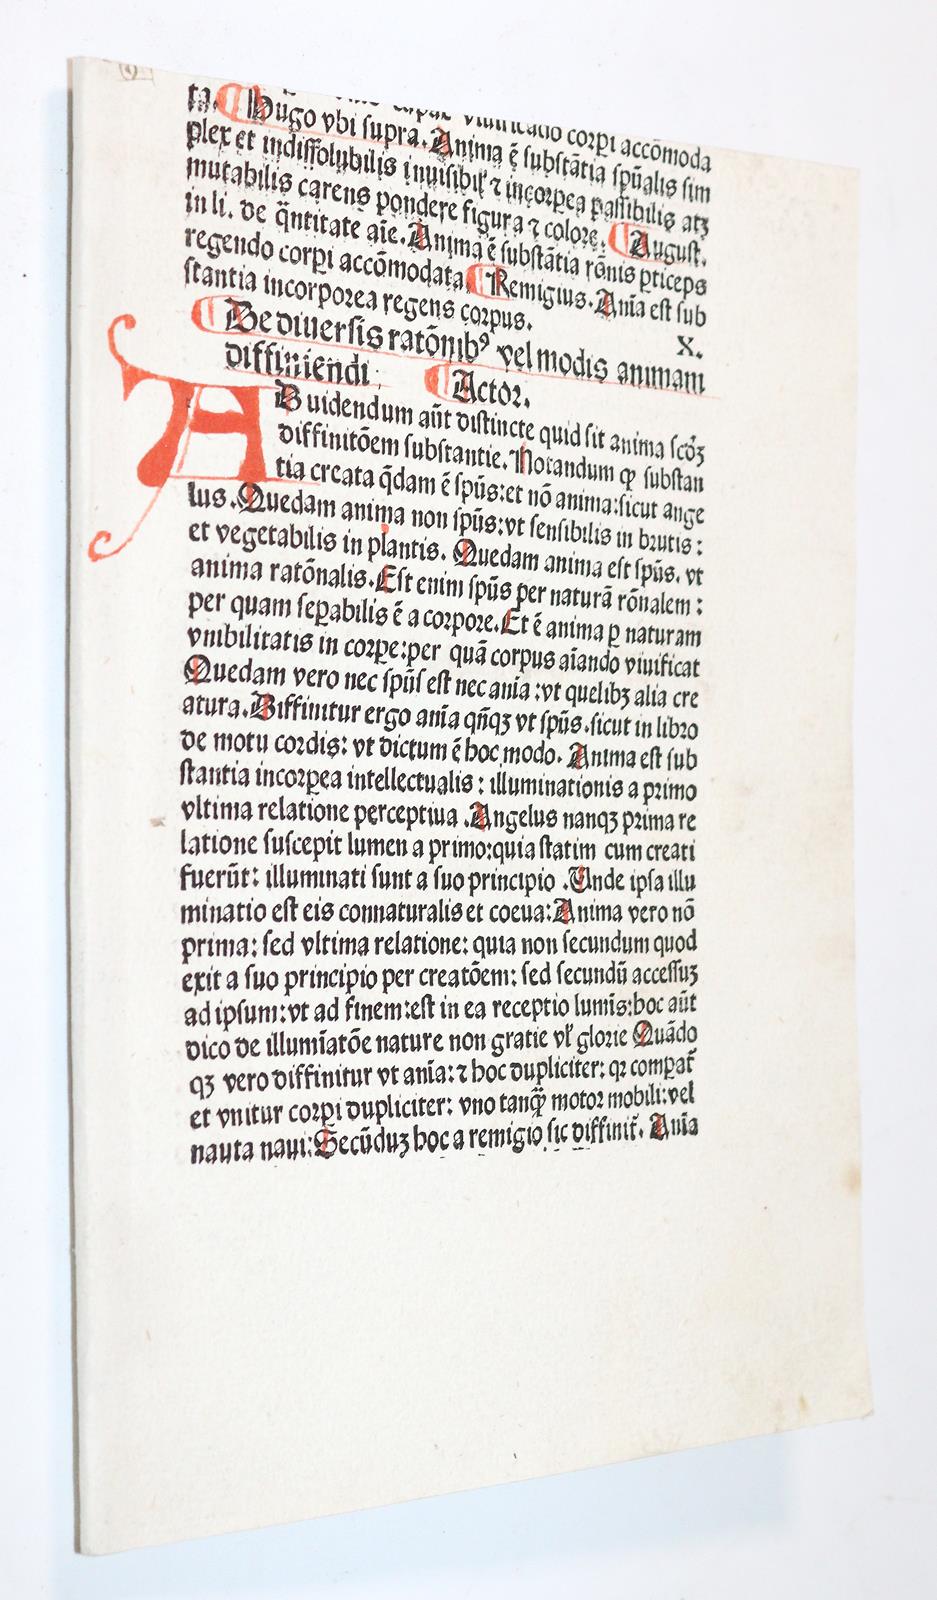 capax viuificatio corpi accōmoda
ta. Hugo vbi supra. Anima ē substātia spūalis sim
plex et indissolubilis inuisibilꝭ ⁊ incorpea passibilis atꝫ
mutabilis carens pondere figura ⁊ colore. August.
in li. de q̄ntitate aīe. Anima ē substātia rōnis pticeps
regendo corpi accōmodata. Remigius. Aīa est sub
stantia incorporea regens corpus.
X.
De diuersis ratōnibꝰ vel modis animam
diffiniendi
Actor.
AD uidendum aūt distincte quid sit anima scďꝫ
diffinitōem substantie. Notandum ꝙ substan
tia creata q̄dam ē spūs: et nō anima: sicut ange
lus. Quedam anima non spūs: vt sensibilis in brutis:
et vegetabilis in plantis. Quedam anima est spūs. vt
anima ratōnalis. Est enim spūs per naturā rōnalem:
per quam sepabilis ē a corpore. Et ē anima ꝑ naturam
vnibilitatis in corpe: per quā corpus aīando viuificat
Quedam vero nec spūs est nec anīa: vt quelibꝫ alia cre
atura. Diffinitur ergo anīa qn̄qꝫ vt spūs. sicut in libro
de motu cordis: vt dictum ē hoc modo. Anima est sub
stantia incorpea intellectualis: illuminationis a primo
vltima relatione perceptiua. Angelus nanqꝫ prima re
latione suscepit lumen a primo: quia statim cum creati
fuerūt: illuminati sunt a suo principio. Unde ipsa illu
minatio est eis connaturalis et coeua: Anima vero nō
prima: sed vltima relatione: quia non secundum quod
exit a suo principio per creatōem: sed secundū accessuꝫ
ad ipsum: vt ad finem: est in ea receptio lumīs: hoc aūt
dico de illumīatōe nature non gratie vl̓ glorie Quādo
qꝫ vero diffinitur vt anīa: ⁊ hoc dupliciter: qꝛ compat̄
et vnitur corpi dupliciter: vno tanꝙ̄ motor mobili: vel
nauta naui: Secūduꝫ hoc a remigio sic diffinit̄. Anīa